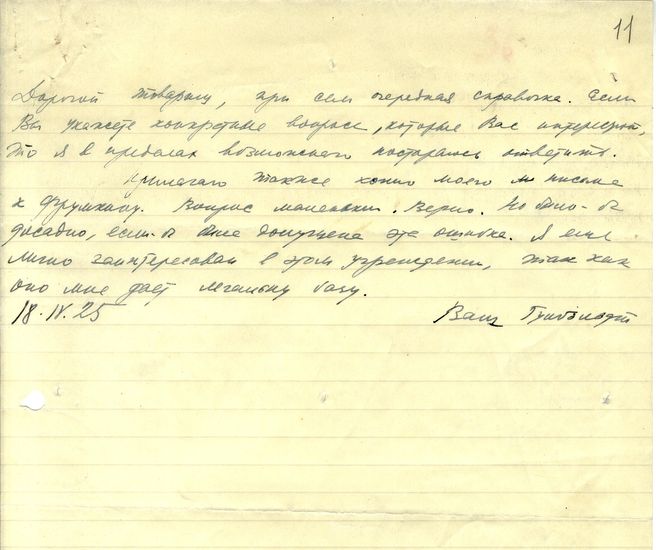 11
Дорогой товарищ, при сем очередная справочка. Если
Вы укажете конкретные вопросы, которые Вас интересуют,
то я в пределах возможного постараюсь ответить.
Прилагаю также копию моего письма
к Фрумкину. Вопрос маленький. Верно. Но было-б
досадно, если-б была допущена эта ошибка. Я еще
лично заинтересован в этом учреждении, так как
оно мне дает легальную базу.
18.IV.25 Ваш